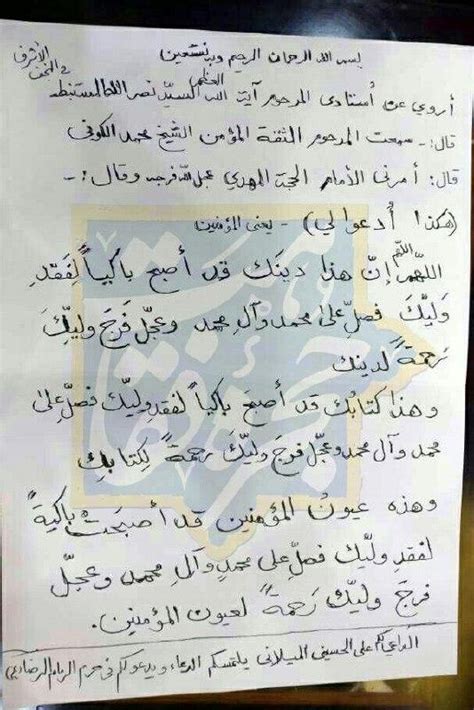 بسم الله الرحمان الرحيم وبه نستعين
في النجف الأشرف
أروي عن أستاذي المرحوم آية الله العظمى السيد نصر الله المستنبط
قال: - سمعت المرحوم الثقة المؤمن الشيخ محمد الكوفي
قال: أمرني الأمام الحجة المهدي عجل الله فرجه وقال: -
(هكذا أُدعوا لي) - يعني المؤمنين
اللهم إنّ هذا دينَك قد أصبح باكياً لِفَقدِ
وَليّكَ فصلّ على محمد وآل محمد وعجّل فَرَجَ وليّكَ
رَحمةً لدينك
وهذا كتابُك قد أصبَحَ باكياً لفقدِ وليّك فصلّ على
محمد وآل محمد وعجّل فرجَ وليّكَ رحمةً لِكتابِك
وهذه عيونُ المؤمنين قد أصبحَتْ باكيةً
لفقدِ وليّك فصلّ على محمدٍ وآلِ محمد وعجّل
فرجَ وليّك رَحمةً لعيون المؤمنين.
الداعي لكم علي الحسيني الميلاني يلتمسكم الدعاء ويدعو لكم في حرم الإمام الرضا